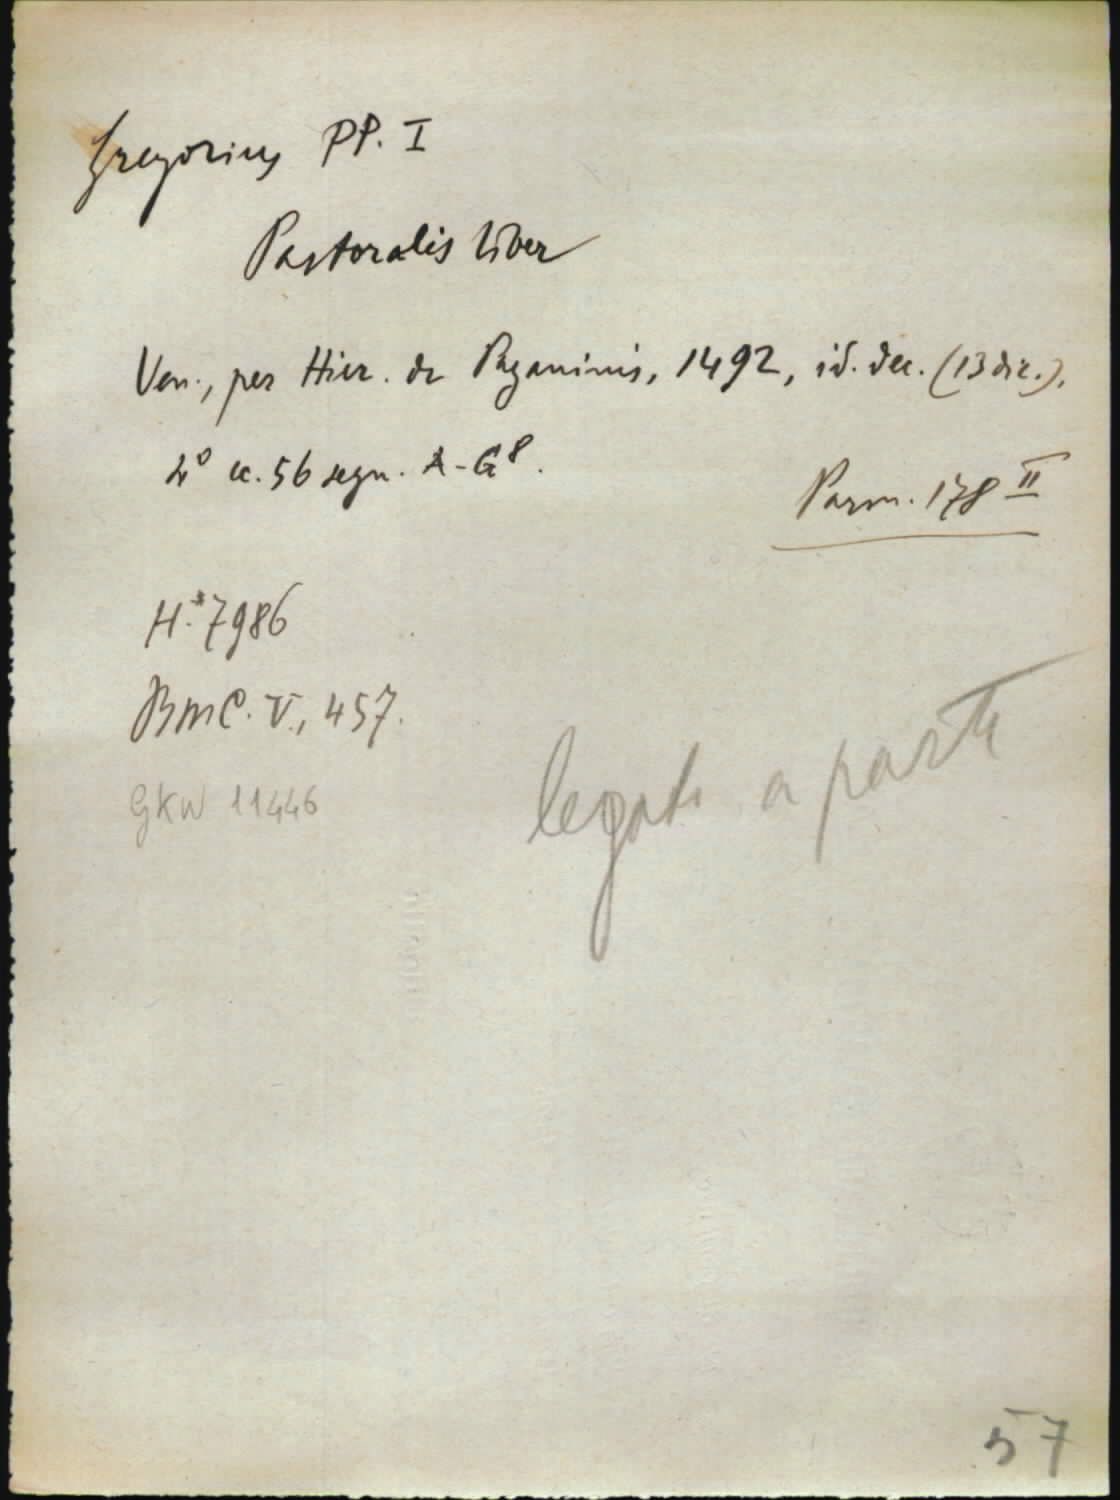 Gregorius PP. I
Pastoralis liber
Ven., per Hier. de Paganinis, 1492, id. dec. (13 dic.).
4° cc. 56 segn. A-G⁸.
Parm. 178 II
H.*7986
BMC. V., 457.
GKW 11446
legato a parte
57